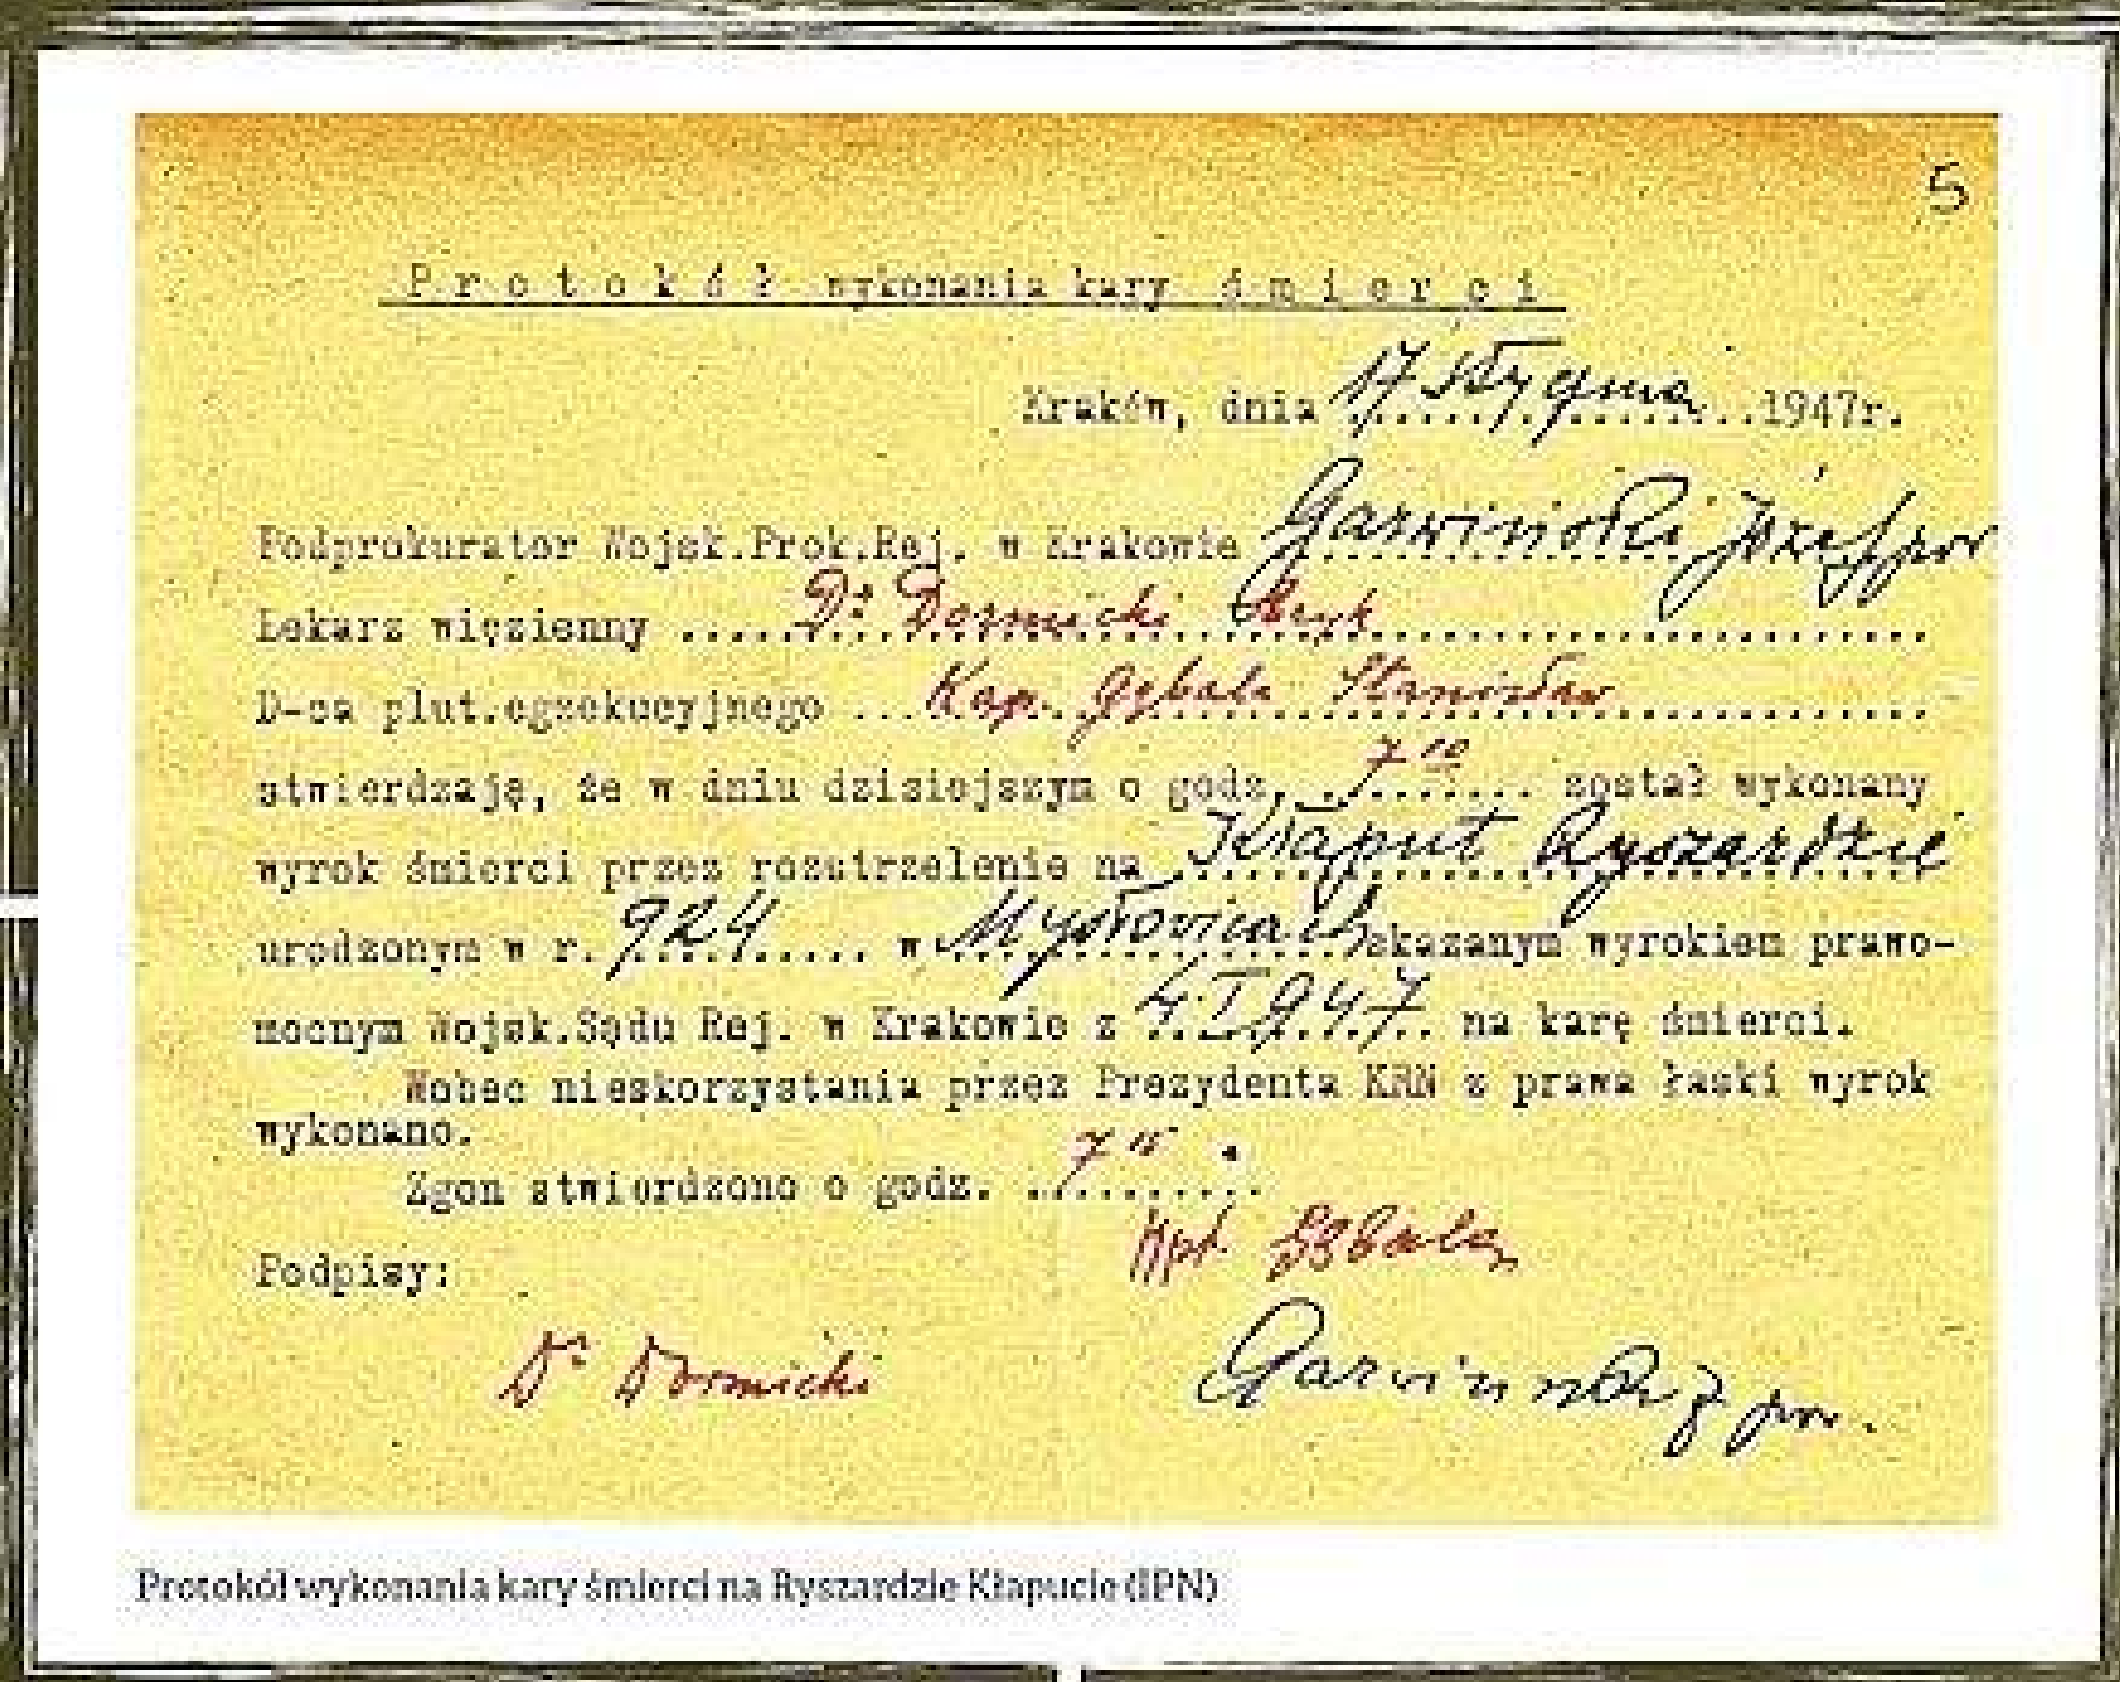 5
Protokół wykonania kary śmierci
Kraków, dnia 17 stycznia 1947r.
Podprokurator Wojsk.Prok.Rej. w Krakowie Garwiński Józef por
Lekarz więzienny Dr Dormicki
D-ca plut.egzekucyjnego Kap. Gębala Stanisław
stwierdzają, że w dniu dzisiejszym o godz. 7 10 został wykonany
wyrok śmierci przez rozstrzelenie na Kłaput Ryszardzie
urodzonym w r. 924 w Mysłowicach skazanym wyrokiem prawo-
mocnym Wojsk.Sądu Rej. w Krakowie z 4.I.947 na karę śmierci.
Wobec nieskorzystania przez Prezydenta KRN z prawa łaski wyrok
wykonano.
Zgon stwierdzono o godz. 7
Podpisy:
Kpt. Gębala
Dr Dormicki
Garwiński J por.
Protokół wykonania kary śmierci na Ryszardzie Kłapucie (IPN)